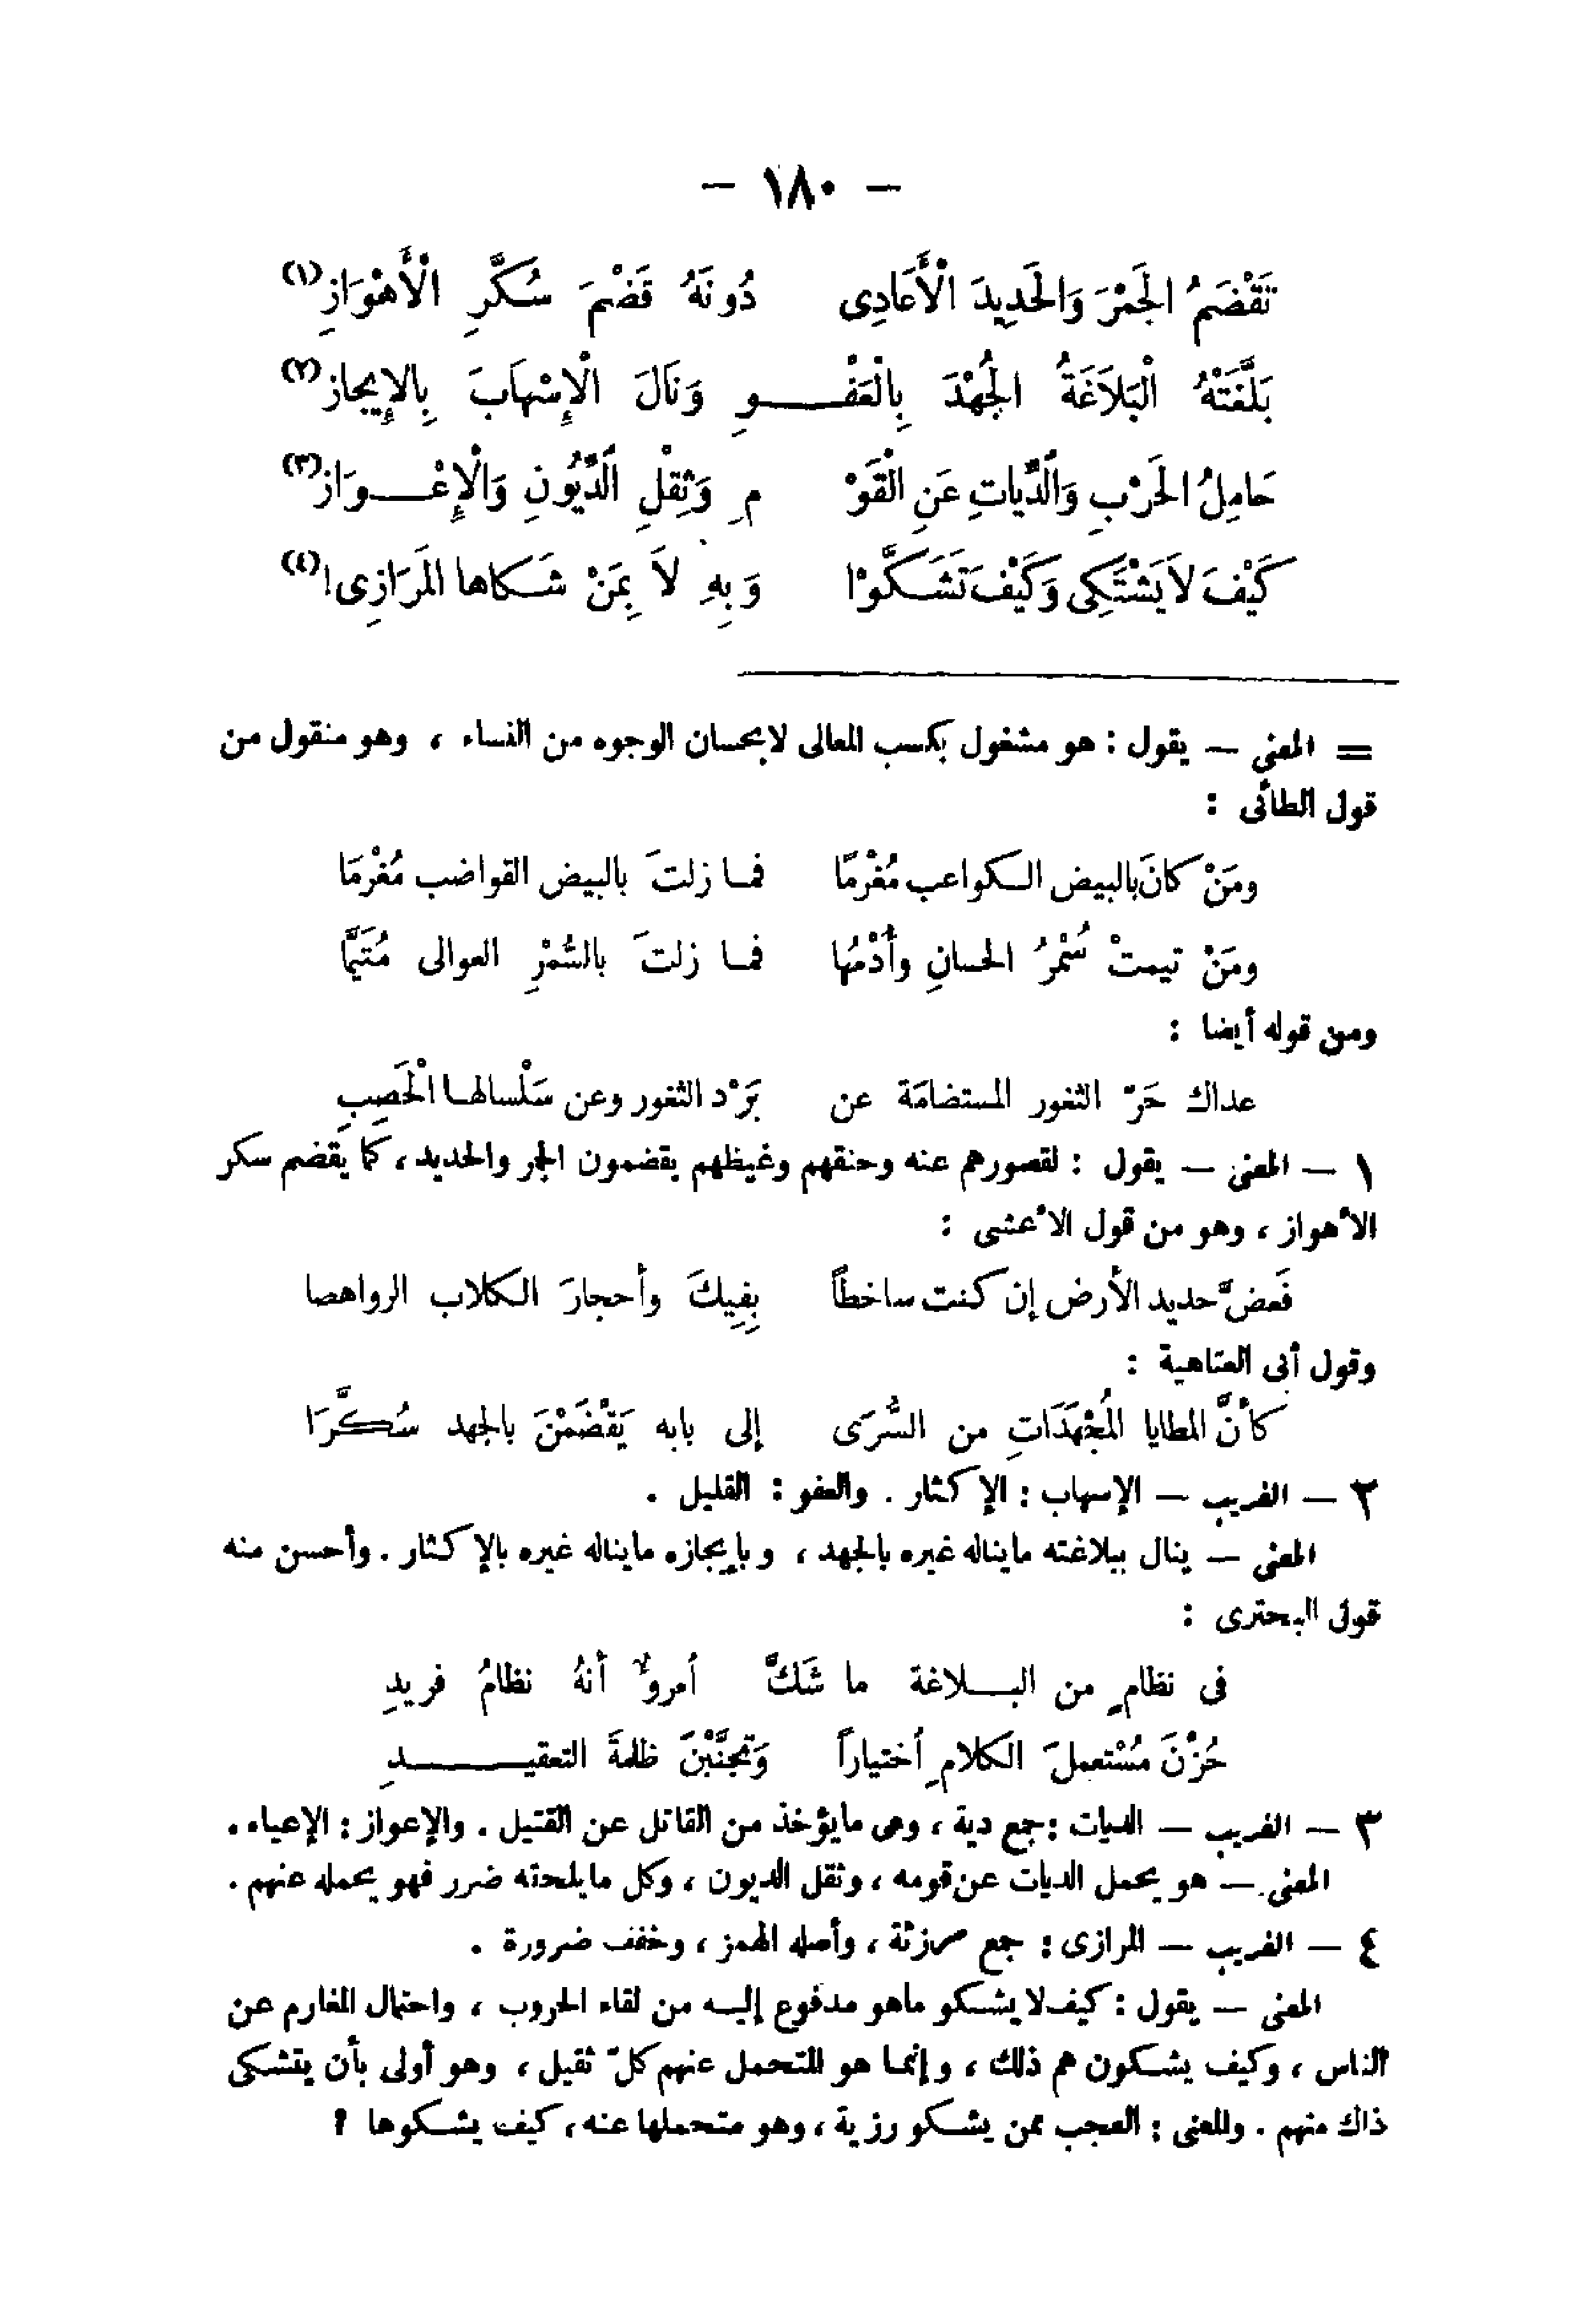 — ١٨٠ —
تَقْضَمُ الجَمْرَ وَالحَدِيدَ الْأَعَادِى دُونَهُ قَضْمَ سُكَّرِ الْأَهْوَازِ (١)
بَلَّغَتْهُ الْبَلاَغَةُ الجُهْدَ بِالْعَفْــوِ وَنَالَ الْإِسْهَابَ بِالإِيجازِ (٢)
حَامِلُ الحَرْبِ وَالدِّيَاتِ عَنِ الْقَوْ مِ وَثِقْلِ الدُّيُونِ وَالْإِعْــوَازِ (٣)
كَيْفَ لاَ يَشْتَكِى وَكَيْفَ تَشَكَّوْا وَبِهِ لاَ بِمَنْ شَكاها المَرَازِى! (٤)
= المعنى — يقول : هو مشغول بكسب المعالى لا بحسان الوجوه من النساء ، وهو منقول من
قول الطائى :
ومَنْ كانَ بالبيض الكواعب مُغْرمًا فما زلتَ بالبيض القواضب مُغْرمَا
ومَنْ تيمتْ سُمْرُ الحسانِ وأُدْمُها فما زلتَ بالسُّمْرِ العوالى مُتَيَّما
ومن قوله أيضا :
عداك حَرّ الثغور المستضامَة عن بَرْد الثغور وعن سَلْسالها الْحَصِبِ
١ — المعنى — يقول : لقصورهم عنه وحنقهم وغيظهم يقضمون الجمر والحديد ، كما يقضم سكر
الأهواز ، وهو من قول الأعشى :
فَعضَّ حديد الأرض إن كنت ساخطاً بِفِيكَ وأحجارَ الكلاب الرواهصا
وقول أبى العتاهية :
كأنَّ المطايا المُجْهَدَاتِ من السُّرَى إلى بابه يَقْضَمْنَ بالجهد سُكَّرَا
٢ — الغريب — الإسهاب : الإكثار . والعفو : القليل .
المعنى — ينال ببلاغته ما يناله غيره بالجهد ، وبإيجازه ما يناله غيره بالإكثار . وأحسن منه
قول البحترى :
فى نظامٍ من البــلاغة ما شَكَّ أمروٌ أنهُ نظامُ فريدِ
حُزْنَ مُسْتعملَ الكلامِ أختياراً وَتجنَّبْنَ ظلمةَ التعقيــدِ
٣ — الغريب — الديات : جمع دية ، وهى مايؤخذ من القاتل عن القتيل . والإعواز : الإعياء .
المعنى — هو يحمل الديات عن قومه ، وثقل الديون ، وكل مايلحقه ضرر فهو يحمله عنهم .
٤ — الغريب — المرازى : جمع مرزئة ، وأصله الهمز ، وخفف ضرورة .
المعنى — يقول : كيف لا يشكو ماهو مدفوع إليه من لقاء الحروب ، واحتمال المغارم عن
الناس ، وكيف يشكون هم ذلك ، وإنما هو المتحمل عنهم كلّ ثقيل ، وهو أولى بأن يتشكى
ذاك منهم . والمعنى : العجب ممن يشكو رزية ، وهو متحملها عنه ، كيف يشكوها ؟